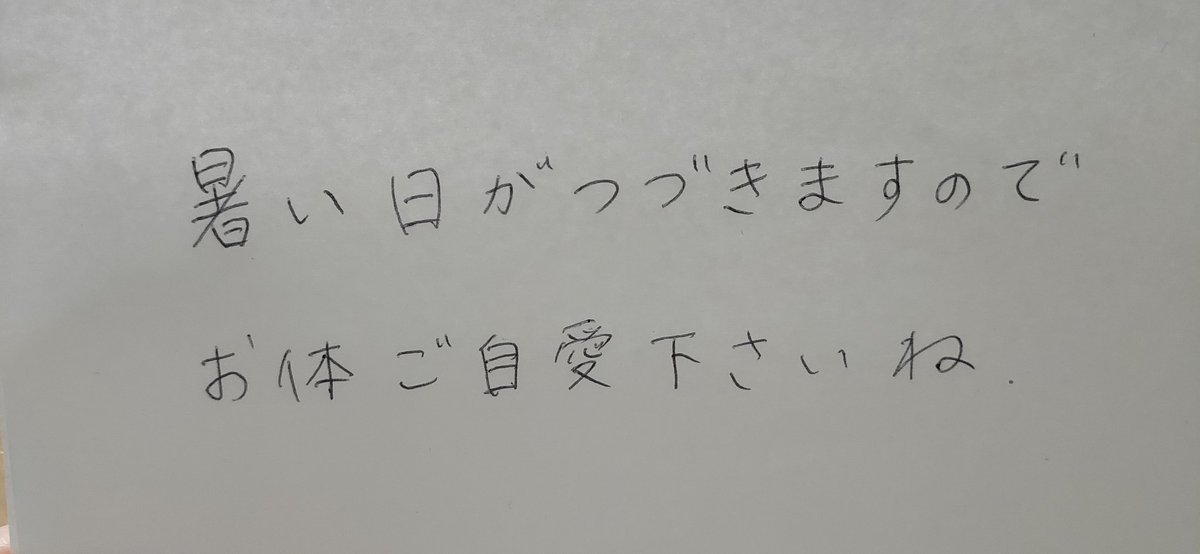 暑い日がつづきますので
お体ご自愛下さいね.